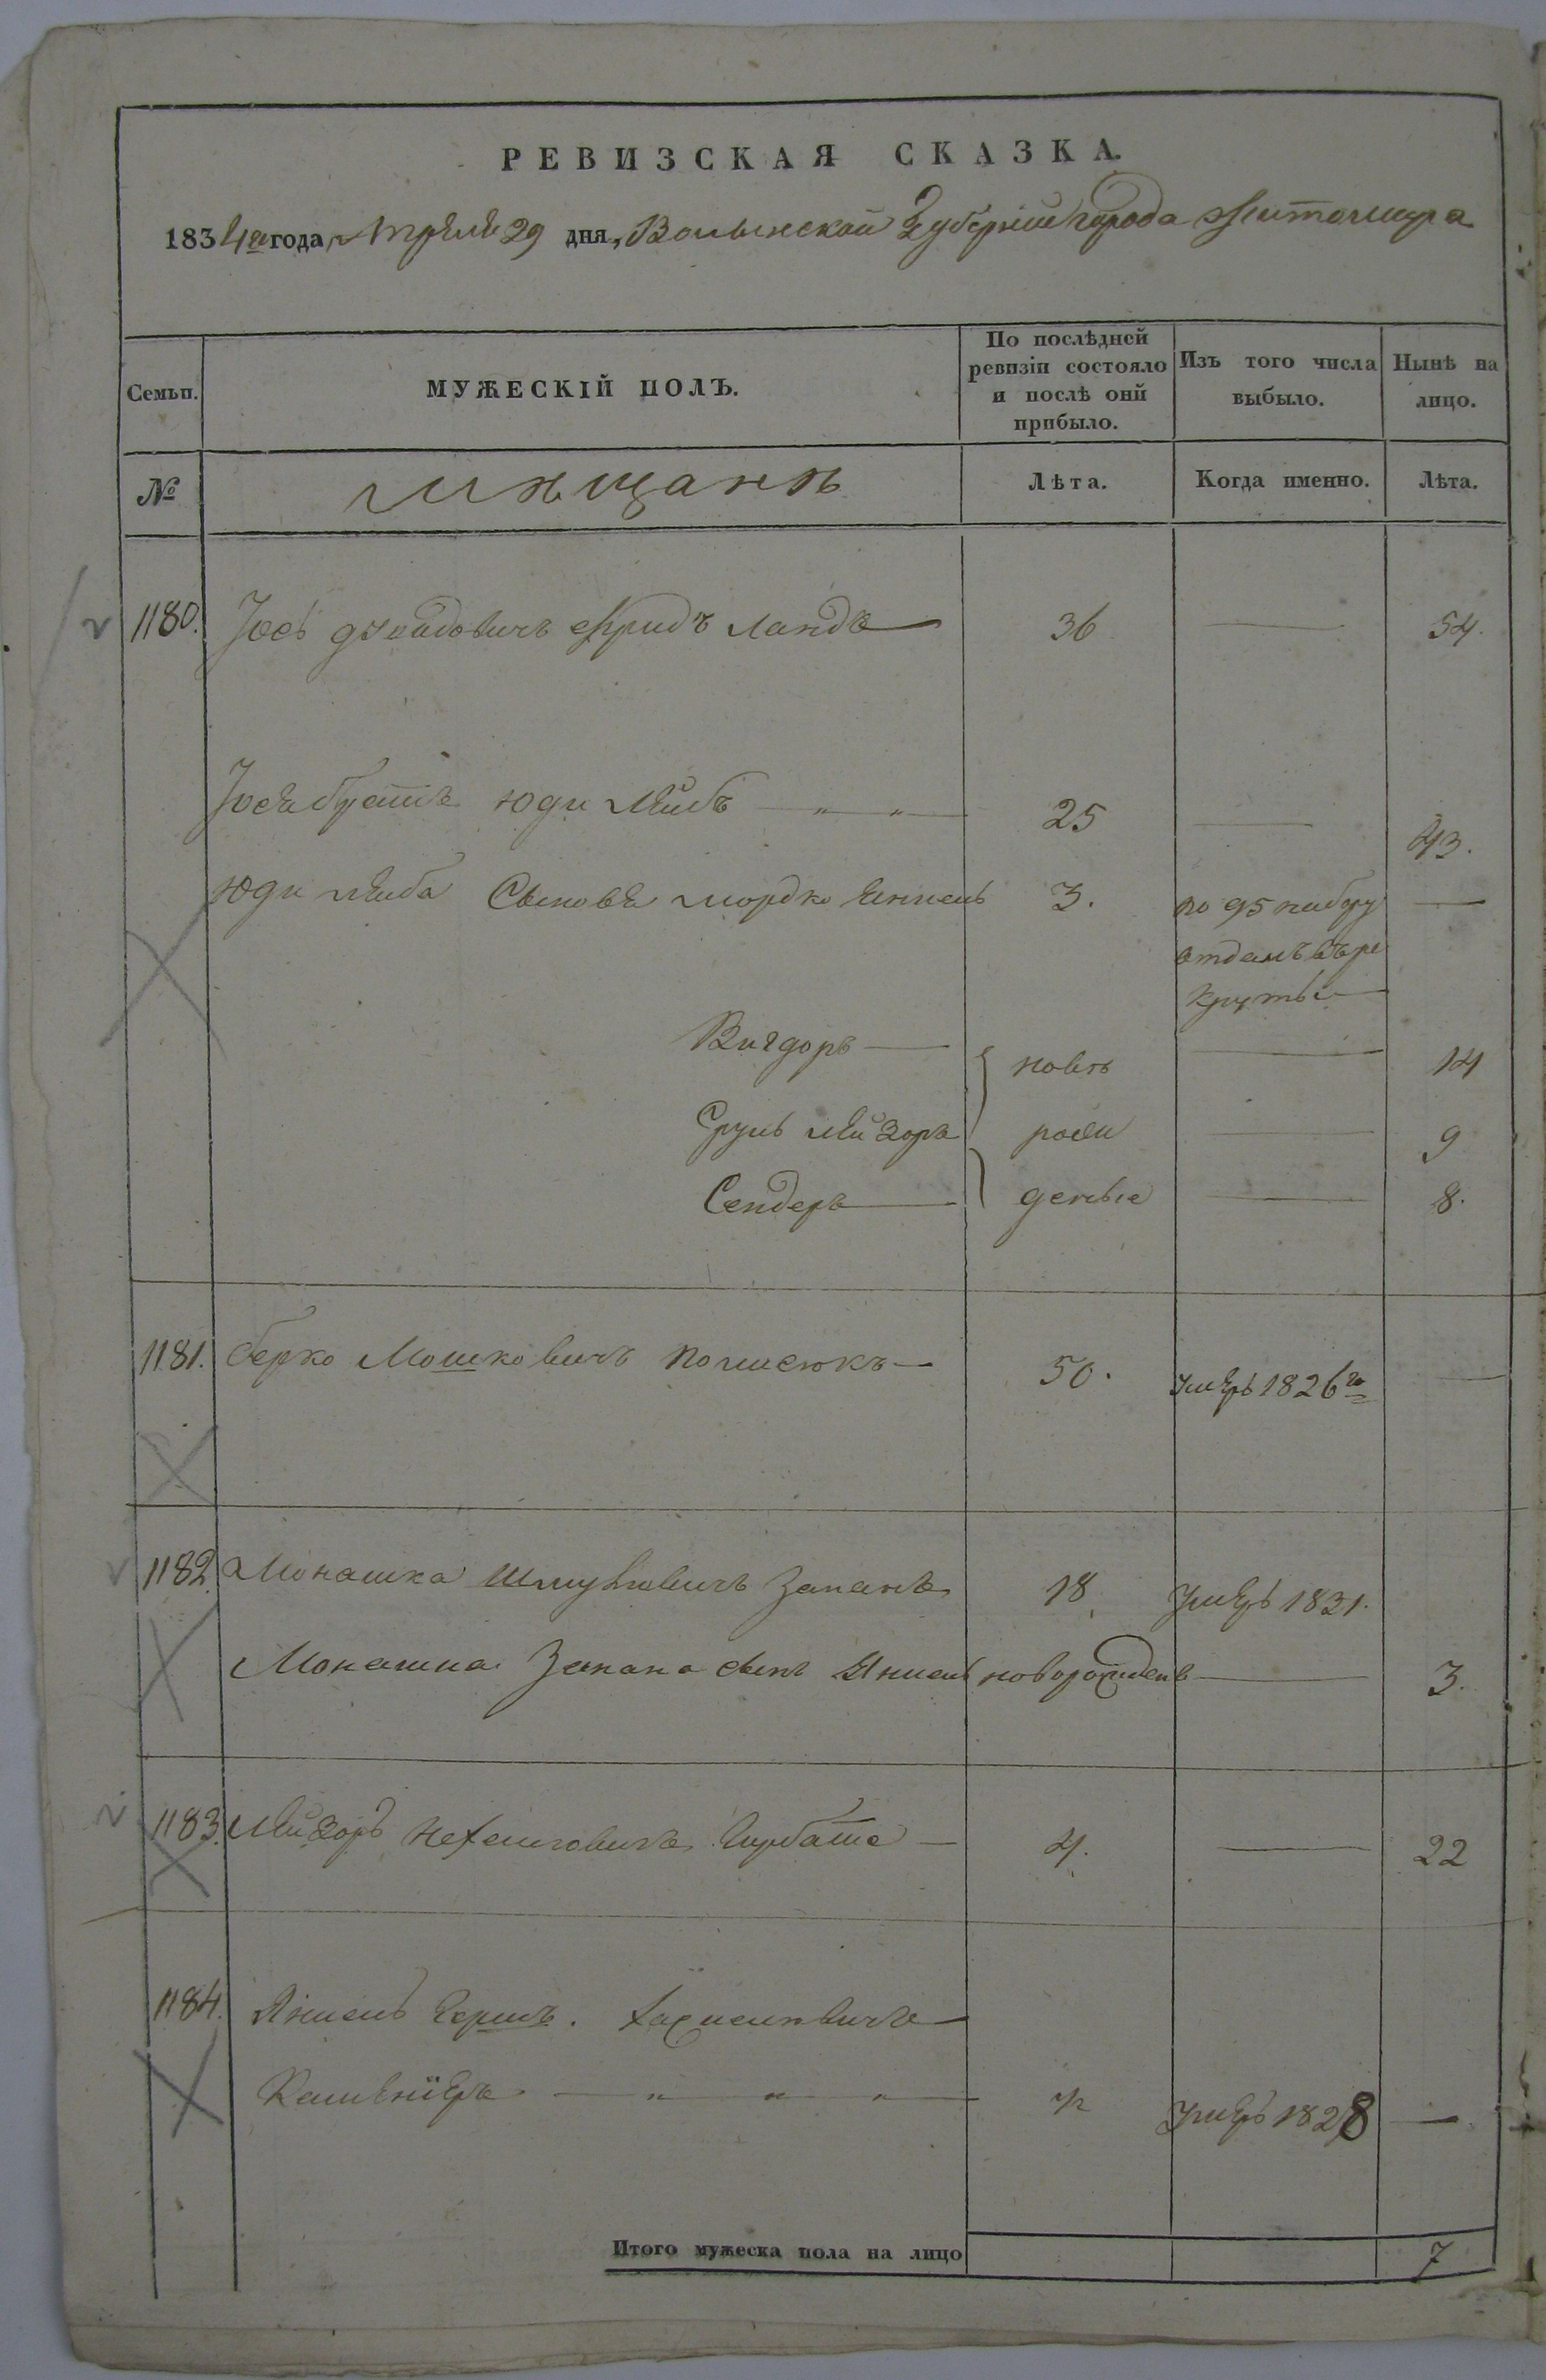 РЕВИЗСКАЯ СКАЗКА.
1834го года Апреля 29 дня, Волынской Губернии города Житомира
Семьи. МУЖЕСКІЙ ПОЛЪ. По послѣдней ревизіи состояло и послѣ онй прибыло. Изъ того числа выбыло. Нынѣ на лицо.
№ мѣщанѣ Лѣта. Когда именно. Лѣта.
1180. Іось ланде 36 54.
Іося братъ Юди Лейбъ 25 43.
Юди Лейба Сыновя Мордко Янкель 3. по 95 набору
отданъ въ ре
круты
Вигдоръ новѣ 14
Сруль Лейзоръ рож 9
Сендеръ деные 8.
1181. Берко Мошковичъ 50. умеръ 1826го
1182. Монашка Шмулевичъ Запанъ 18 умеръ 1831.
Монашка Запана сынъ Янкель новорожденъ 3.
1183. Лейзоръ 4. 22
1184. Янкель Гершъ.
4 умеръ 1828
Итого мужеска пола на лицо 7